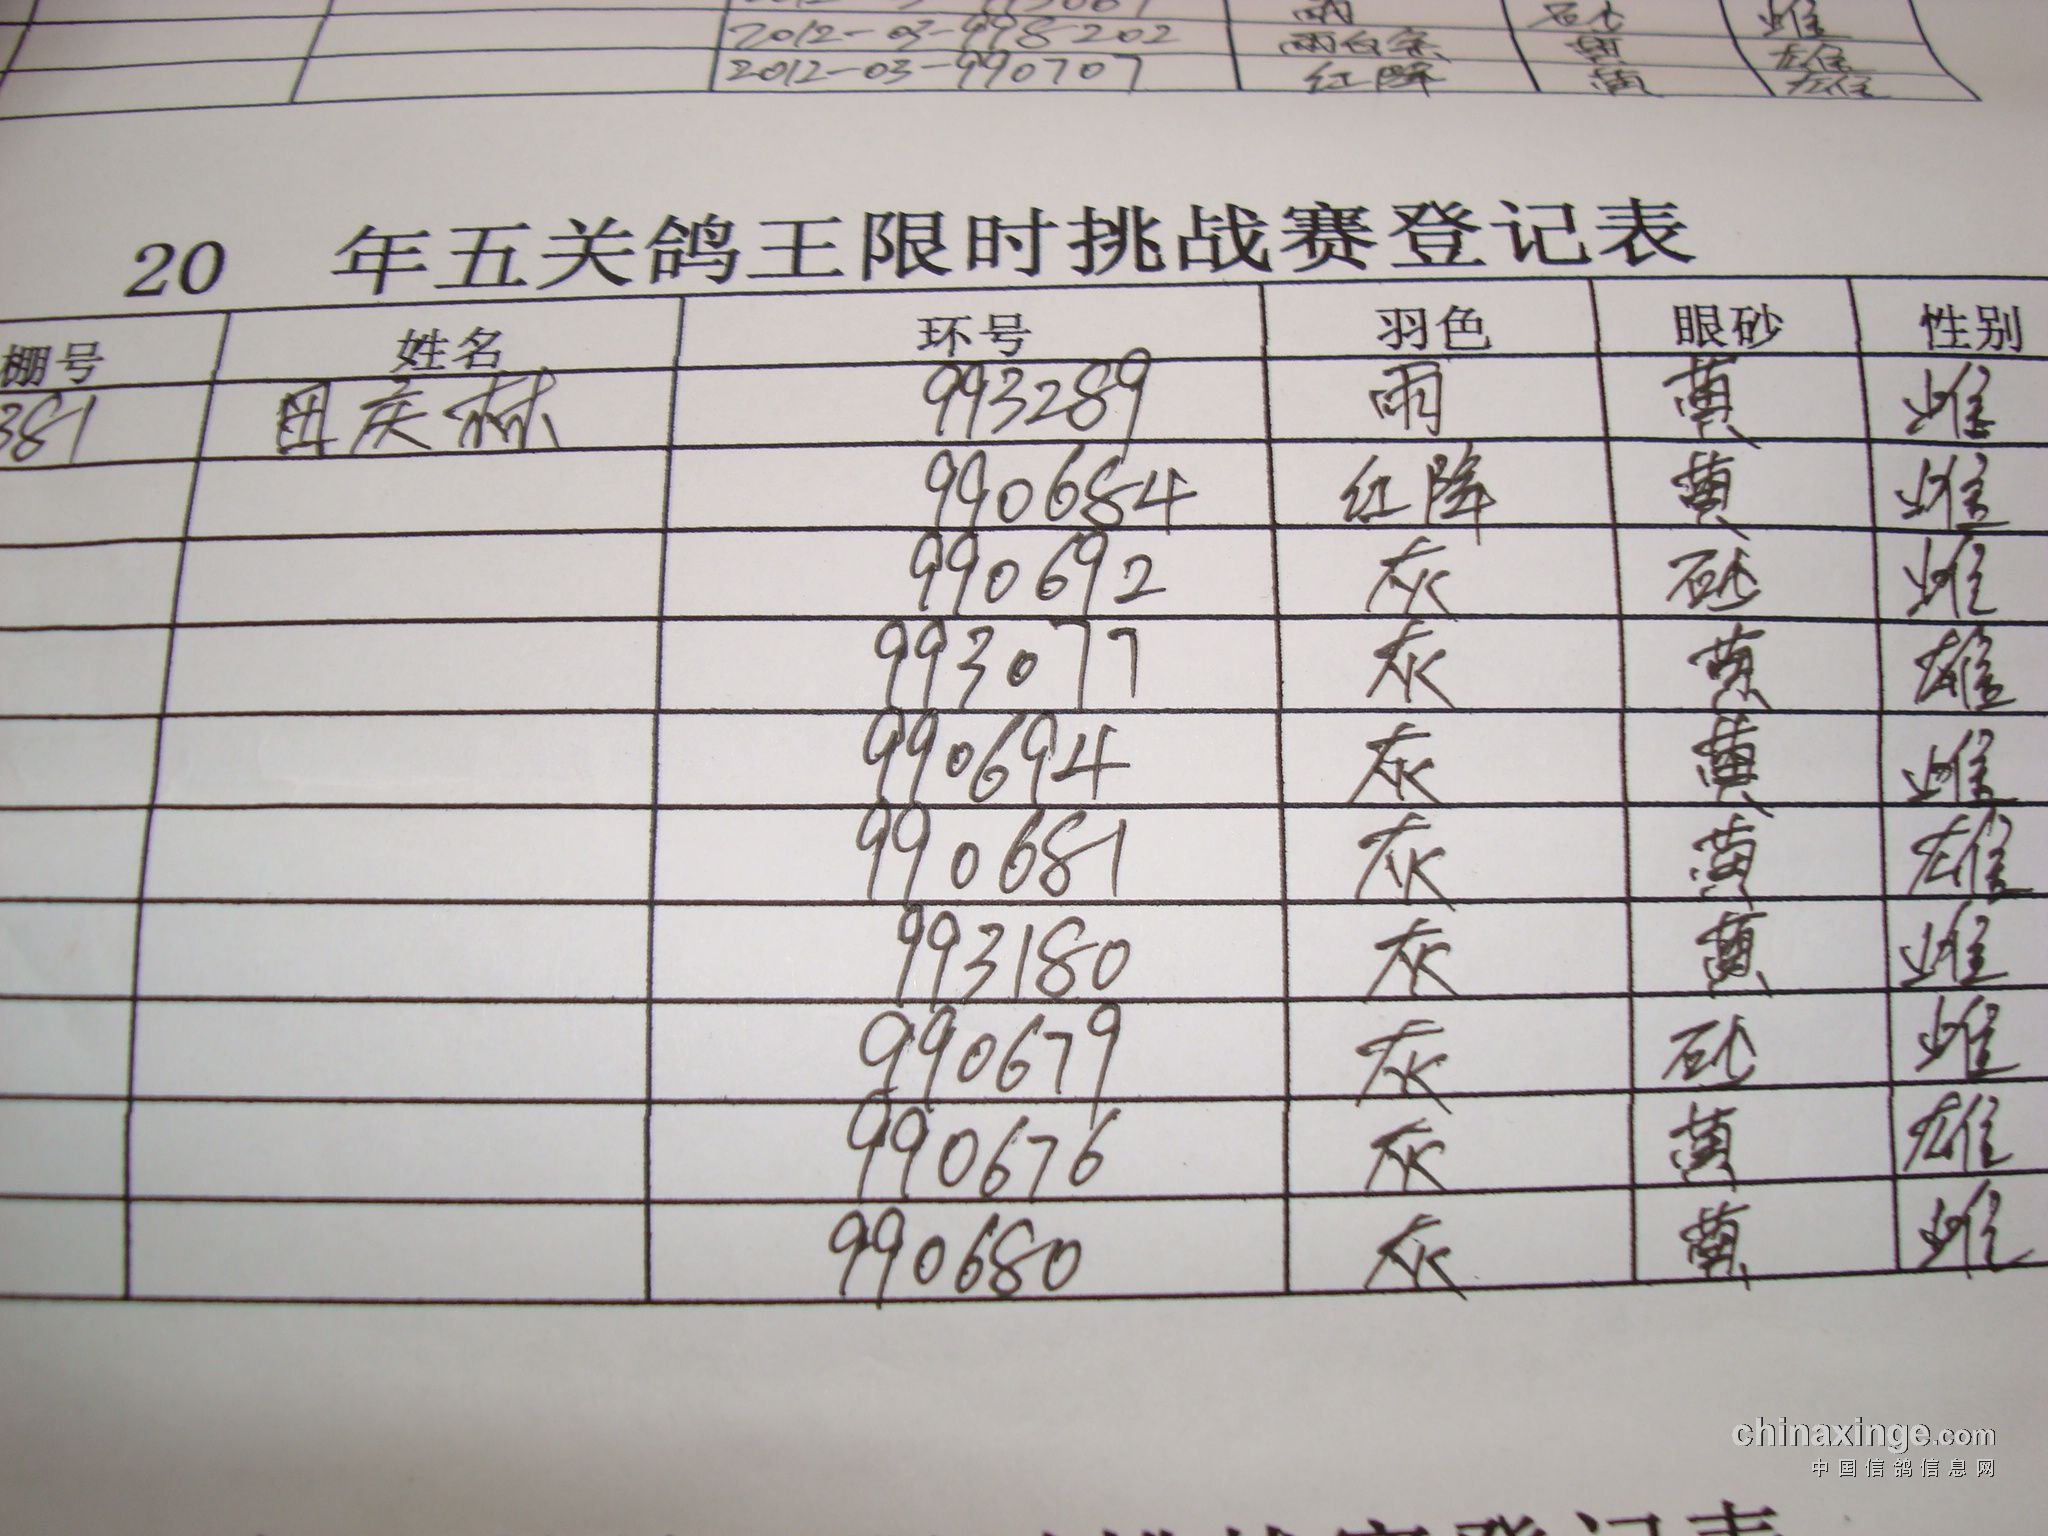 2012-03-998202 雨白条 黄 雄
2012-03-990707 红降 黄 雄
20 年五关鸽王限时挑战赛登记表
棚号 姓名 环号 羽色 眼砂 性别
381 田庆林 993289 雨 黄 雌
990684 红降 黄 雌
990692 灰 砂 雌
993077 灰 黄 雄
990694 灰 黄 雌
990681 灰 黄 雄
993180 灰 黄 雌
990679 灰 砂 雌
990676 灰 黄 雄
990680 灰 黄 雌
chinaxinge.com
中国信鸽信息网